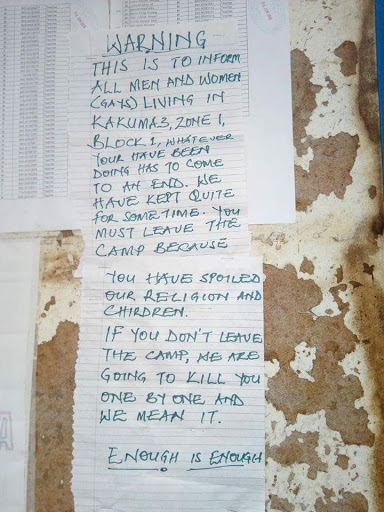 WARNING
THIS IS TO INFORM
ALL MEN AND WOMEN
(GAYS) LIVING IN
KAKUMA3, ZONE 1,
BLOCK 1, WHATEVER
YOUR HAVE BEEN
DOING HAS TO COME
TO AN END. WE
HAVE KEPT QUITE
FOR SOME TIME. YOU
MUST LEAVE THE
CAMP BECAUSE
YOU HAVE SPOILED
OUR RELIGION AND
CHIRDREN.
IF YOU DON'T LEAVE
THE CAMP, WE ARE
GOING TO KILL YOU
ONE BY ONE AND
WE MEAN IT.
ENOUGH IS ENOUGH